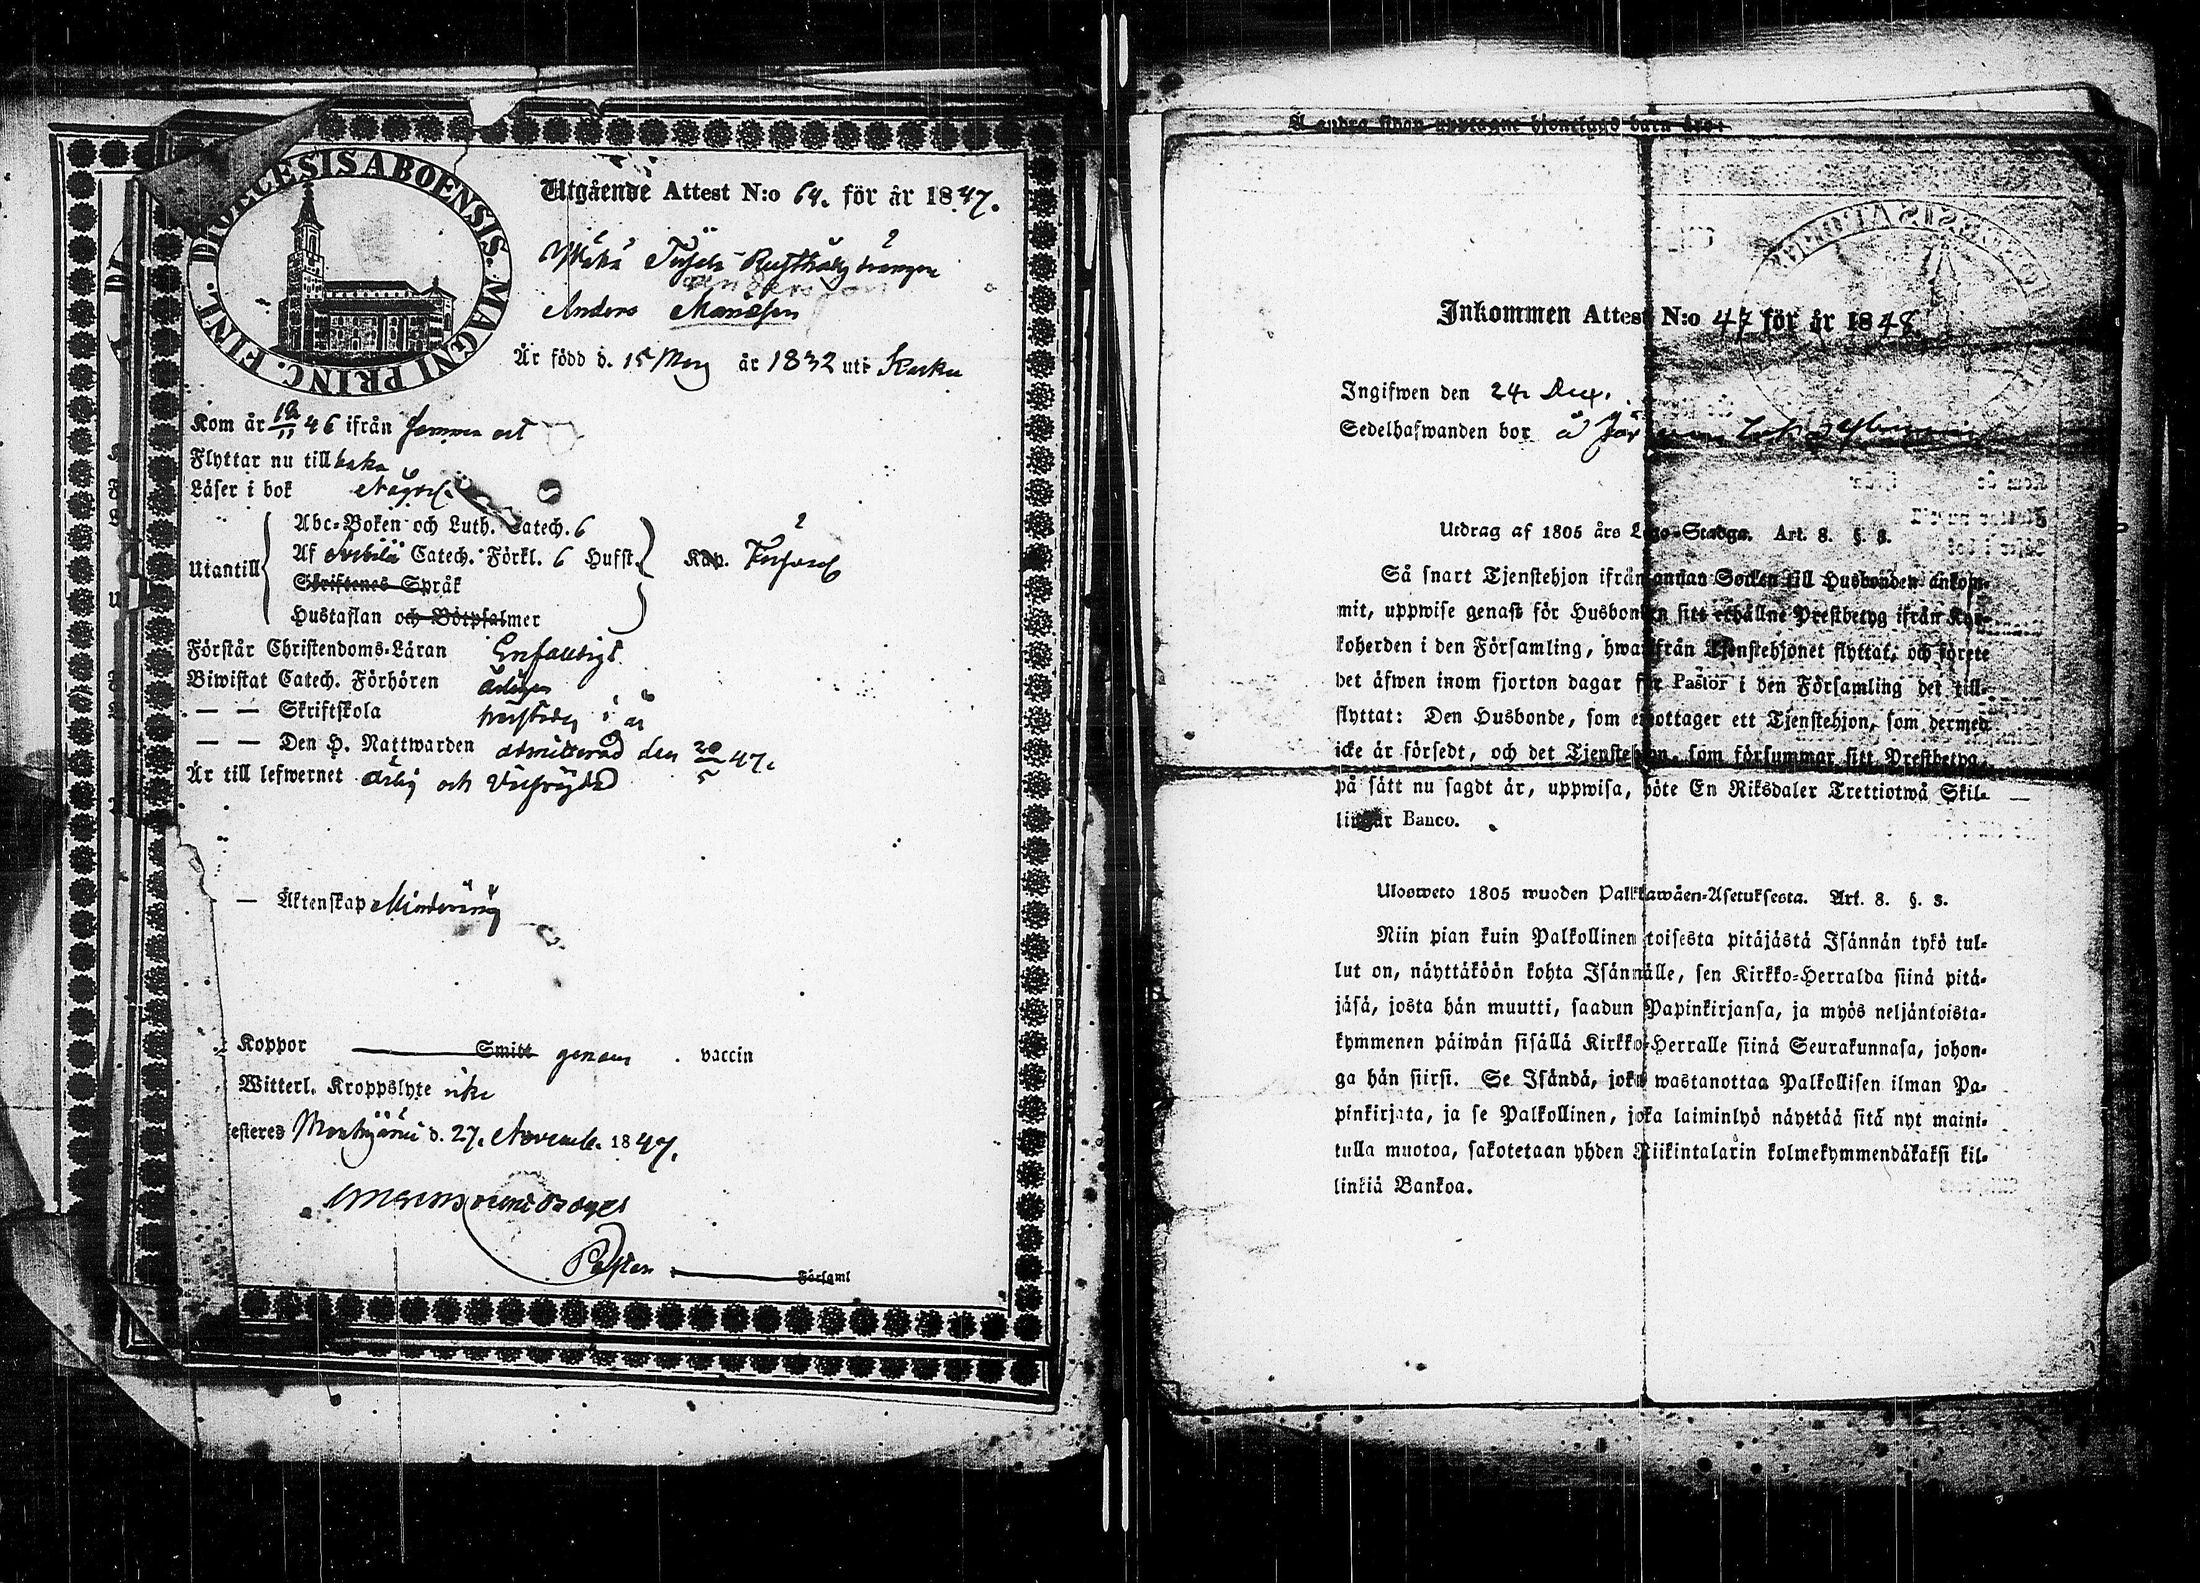 DIOECESIS ABOENSIS. MAGNI PRINC. FINL.
Utgående Attest N:o 64. för år 1847.
Anders
Är född d. 15 år 1832 uti
Kom år 10/11 46 ifrån samma ort
Flyttar nu tillbaka
Läser i bok
Utantill
Abc-Boken och Luth. Catech. 6
Af Svebilii Catech. Förkl. 6 Hufst.
Skriftenes Språk
Hustaflan och Botpsalmer
Förstår Christendoms-Läran Enfaldigt
Biwistat Catech. Förhören årligen
— — Skriftskola i år
— — Den H. Nattwarden admitterad den 20/5 47.
Är till lefwernet ärlig och
— Äktenskap Minderårig
Koppor Smitt genom vaccin
Witterl. Kroppslyte icke
esteres d. 27. Novemb. 1847.
Pastor Församl
Å andra sidan upptagne tjenstehjons barn äro:
Inkommen Attest N:o 47 för år 1848
Ingifwen den 24 Dec.
Sedelhafwanden bor å
Utdrag af 1805 års Lego-Stadga. Art. 8. §. 3.
Så snart Tjenstehjon ifrån annan Socken till Husbonden ankom-
mit, uppwise genast för Husbonden sitt erhållne Prestbetyg ifrån Kyr-
koherden i den Församling, hwarifrån Tjenstehjonet flyttat, och förete
det äfwen inom fjorton dagar för Pastor i den Församling det till-
flyttat: Den Husbonde, som emottager ett Tjenstehjon, som dermed
icke är försedt, och det Tjenstehjon, som försummar sitt Prestbetyg,
på sätt nu sagdt är, uppwisa, böte En Riksdaler Trettiotwå Skil-
lingar Banco.
Ulosweto 1805 wuoden Palkkawäen-Asetuksesta. Art. 8. §. 3.
Niin pian kuin Palkollinen toisesta pitäjästä Isännän tykö tul-
lut on, näyttäköön kohta Isännälle, sen Kirkko-Herralda siinä pitä-
jäsä, josta hän muutti, saadun Papinkirjansa, ja myös neljäntoista-
kymmenen päiwän sisällä Kirkko-Herralle siinä Seurakunnasa, johon-
ga hän siirsi. Se Isändä, joka wastanottaa Palkollisen ilman Pa-
pinkirjata, ja se Palkollinen, joka laiminlyö näyttää sitä nyt maini-
tulla muotoa, sakotetaan yhden Riikintalarin kolmekymmendäkaksi kil-
linkiä Bankoa.